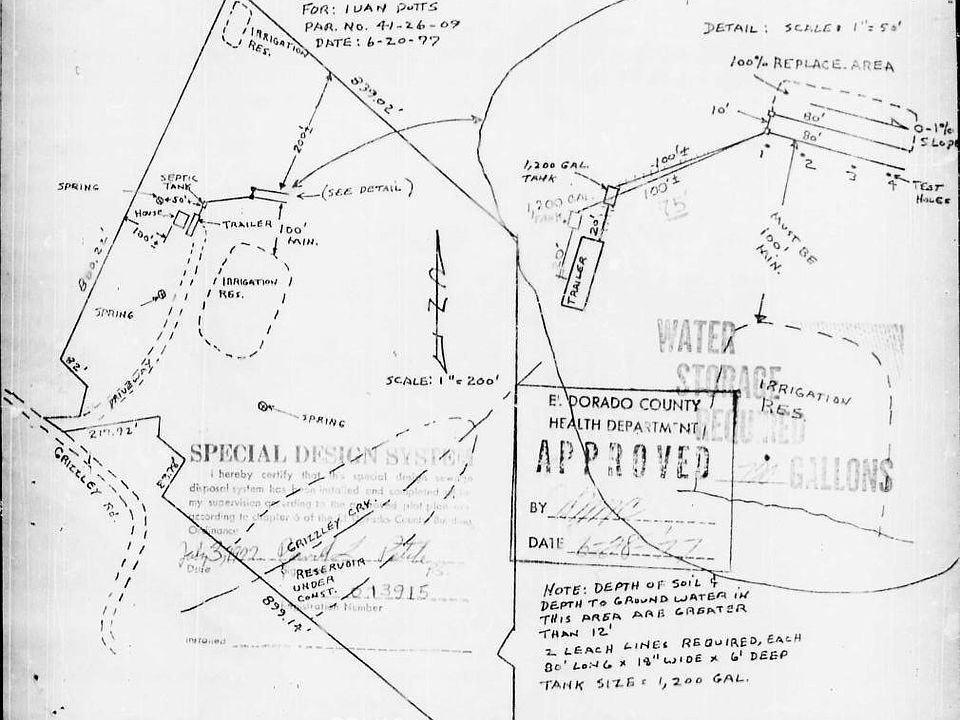 FOR: IVAN POTTS
PAR. NO. 41-26-09
DATE: 6-20-77
IRRIGATION
RES.
839.02'
200'±
SEPTIC
TANK
SPRING
±50'
HOUSE
100'±
TRAILER
(SEE DETAIL)
100'
MIN.
IRRIGATION
RES.
800.22'
SPRING
82'
DRIVEWAY
SCALE: 1"=200'
SPRING
217.92'
GRIZZLEY Rd.
GRIZZLEY CRK.
RESERVOIR
UNDER
CONST.
899.14'
SPECIAL DESIGN SYSTEM
I hereby certify that this special design sewage
disposal system has been installed and completed
my supervision according to the plot plan
according to chapter of the El Dorado County Building
Ordinance.
July 3,
Date
013915
Registration Number
Installed
DETAIL: SCALE: 1"=50'
100% REPLACE. AREA
10'
80'
80'
0-1%
SLOPE
1 2 3 4
TEST
HOLES
1,200 GAL.
TANK
1,200 GAL.
TANK
100'±
100'±
75'
20'
TRAILER
MUST BE
100'
MIN.
IRRIGATION
RES.
WATER
STORAGE
REQUIRED
GALLONS
EL DORADO COUNTY
HEALTH DEPARTMENT
APPROVED
BY
DATE 6-28-77
NOTE: DEPTH OF SOIL &
DEPTH TO GROUND WATER IN
THIS AREA ARE GREATER
THAN 12'
2 LEACH LINES REQUIRED, EACH
80' LONG x 18" WIDE x 6' DEEP
TANK SIZE = 1,200 GAL.